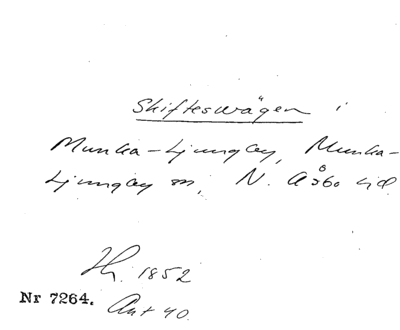 Skifteswägen i
Munka-Ljungby, Munka-
Ljungby sn, N. Åsbo hd
Th. 1852
Nr 7264. Ant 40.